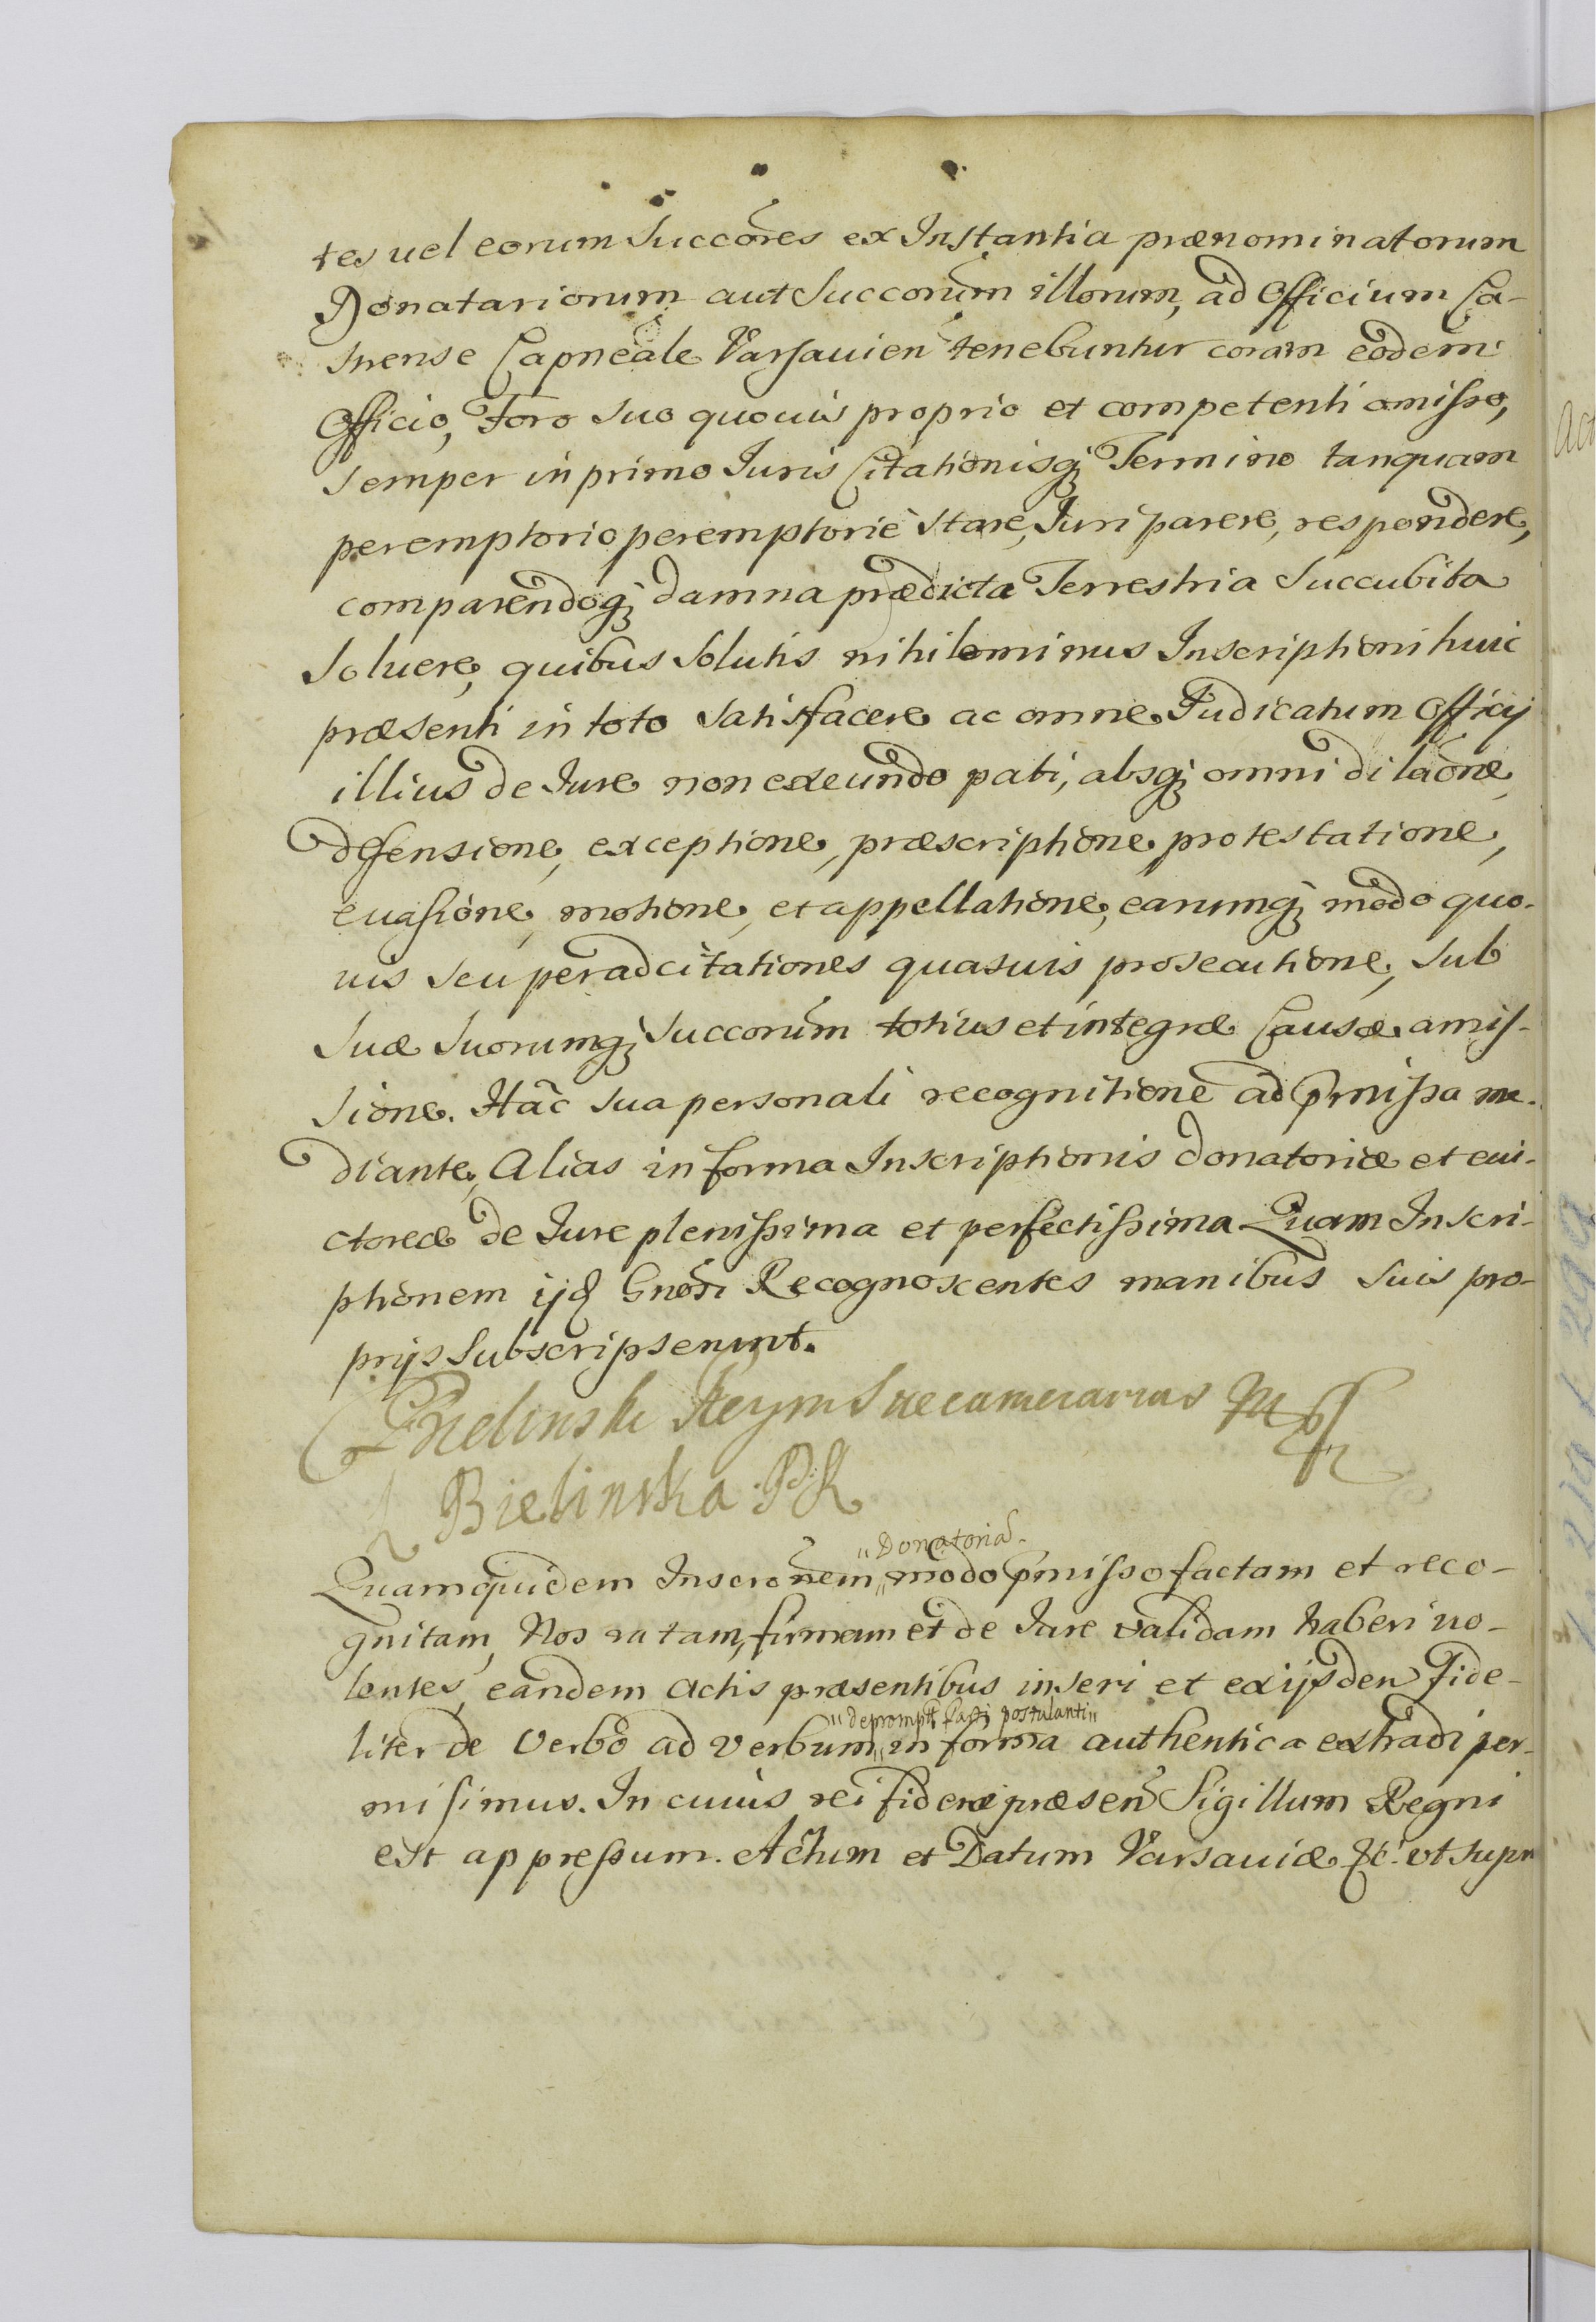 tes uel eorum Succõres ex Instantia prænominatorum
Donatariorum aut Succorũm illorum, ad Officium Ca-
strense Capneãle Varsauień tenebuntur coram eodem
Officio, Foro suo quouis proprio et competenti omisso,
semper in primo Iuris Citationisq; Termino tanquam
peremptorio peremptoriè stare, Iuri parere, respondere,
comparendoq; damna prædicta Terrestria Succubita
soluere, quibus solutis nihilominus Inscriptioni huic
præsenti in toto satisfacere ac omne Iudicatum Officij
illius de Iure non exeundo pati, absq; omni dilaõne,
defensione, exceptione, præscriptione protestatione,
euasione, motione, et appellatione, earumq; modo quo-
uis seu per adcitationes quasuis prosecutione, sub
suæ suorumq; Succorũm totius et integræ Causæ amis-
sione. Hãc sua personali recognitione ad p̃missa me-
diante, Alias in forma Inscriptionis donatoriæ et eui-
ctoreæ de Iure plenissima et perfectissima Quam Inscri-
ptionem ijd Gnõsi Recognoscentes manibus suis pro-
prijs subscripserunt.
Bielinski
Bielinska PR
"Donatoriã
Quamquidem Inscrõnem "modo p̃misso factam et reco-
gnitam, Nos ratam, firmam et de Iure validam haberi uo-
lentes, eandem Actis præsentibus inseri et ex ijsdem fide-
"deprompt parti postulanti"
liter de Verbo ad Verbum "in forma authentica extradi per-
misimus. In cuius rei fidem præseń Sigillum Regni
est appressum. Actum et Datum Varsauiæ &c. ut supr
Act